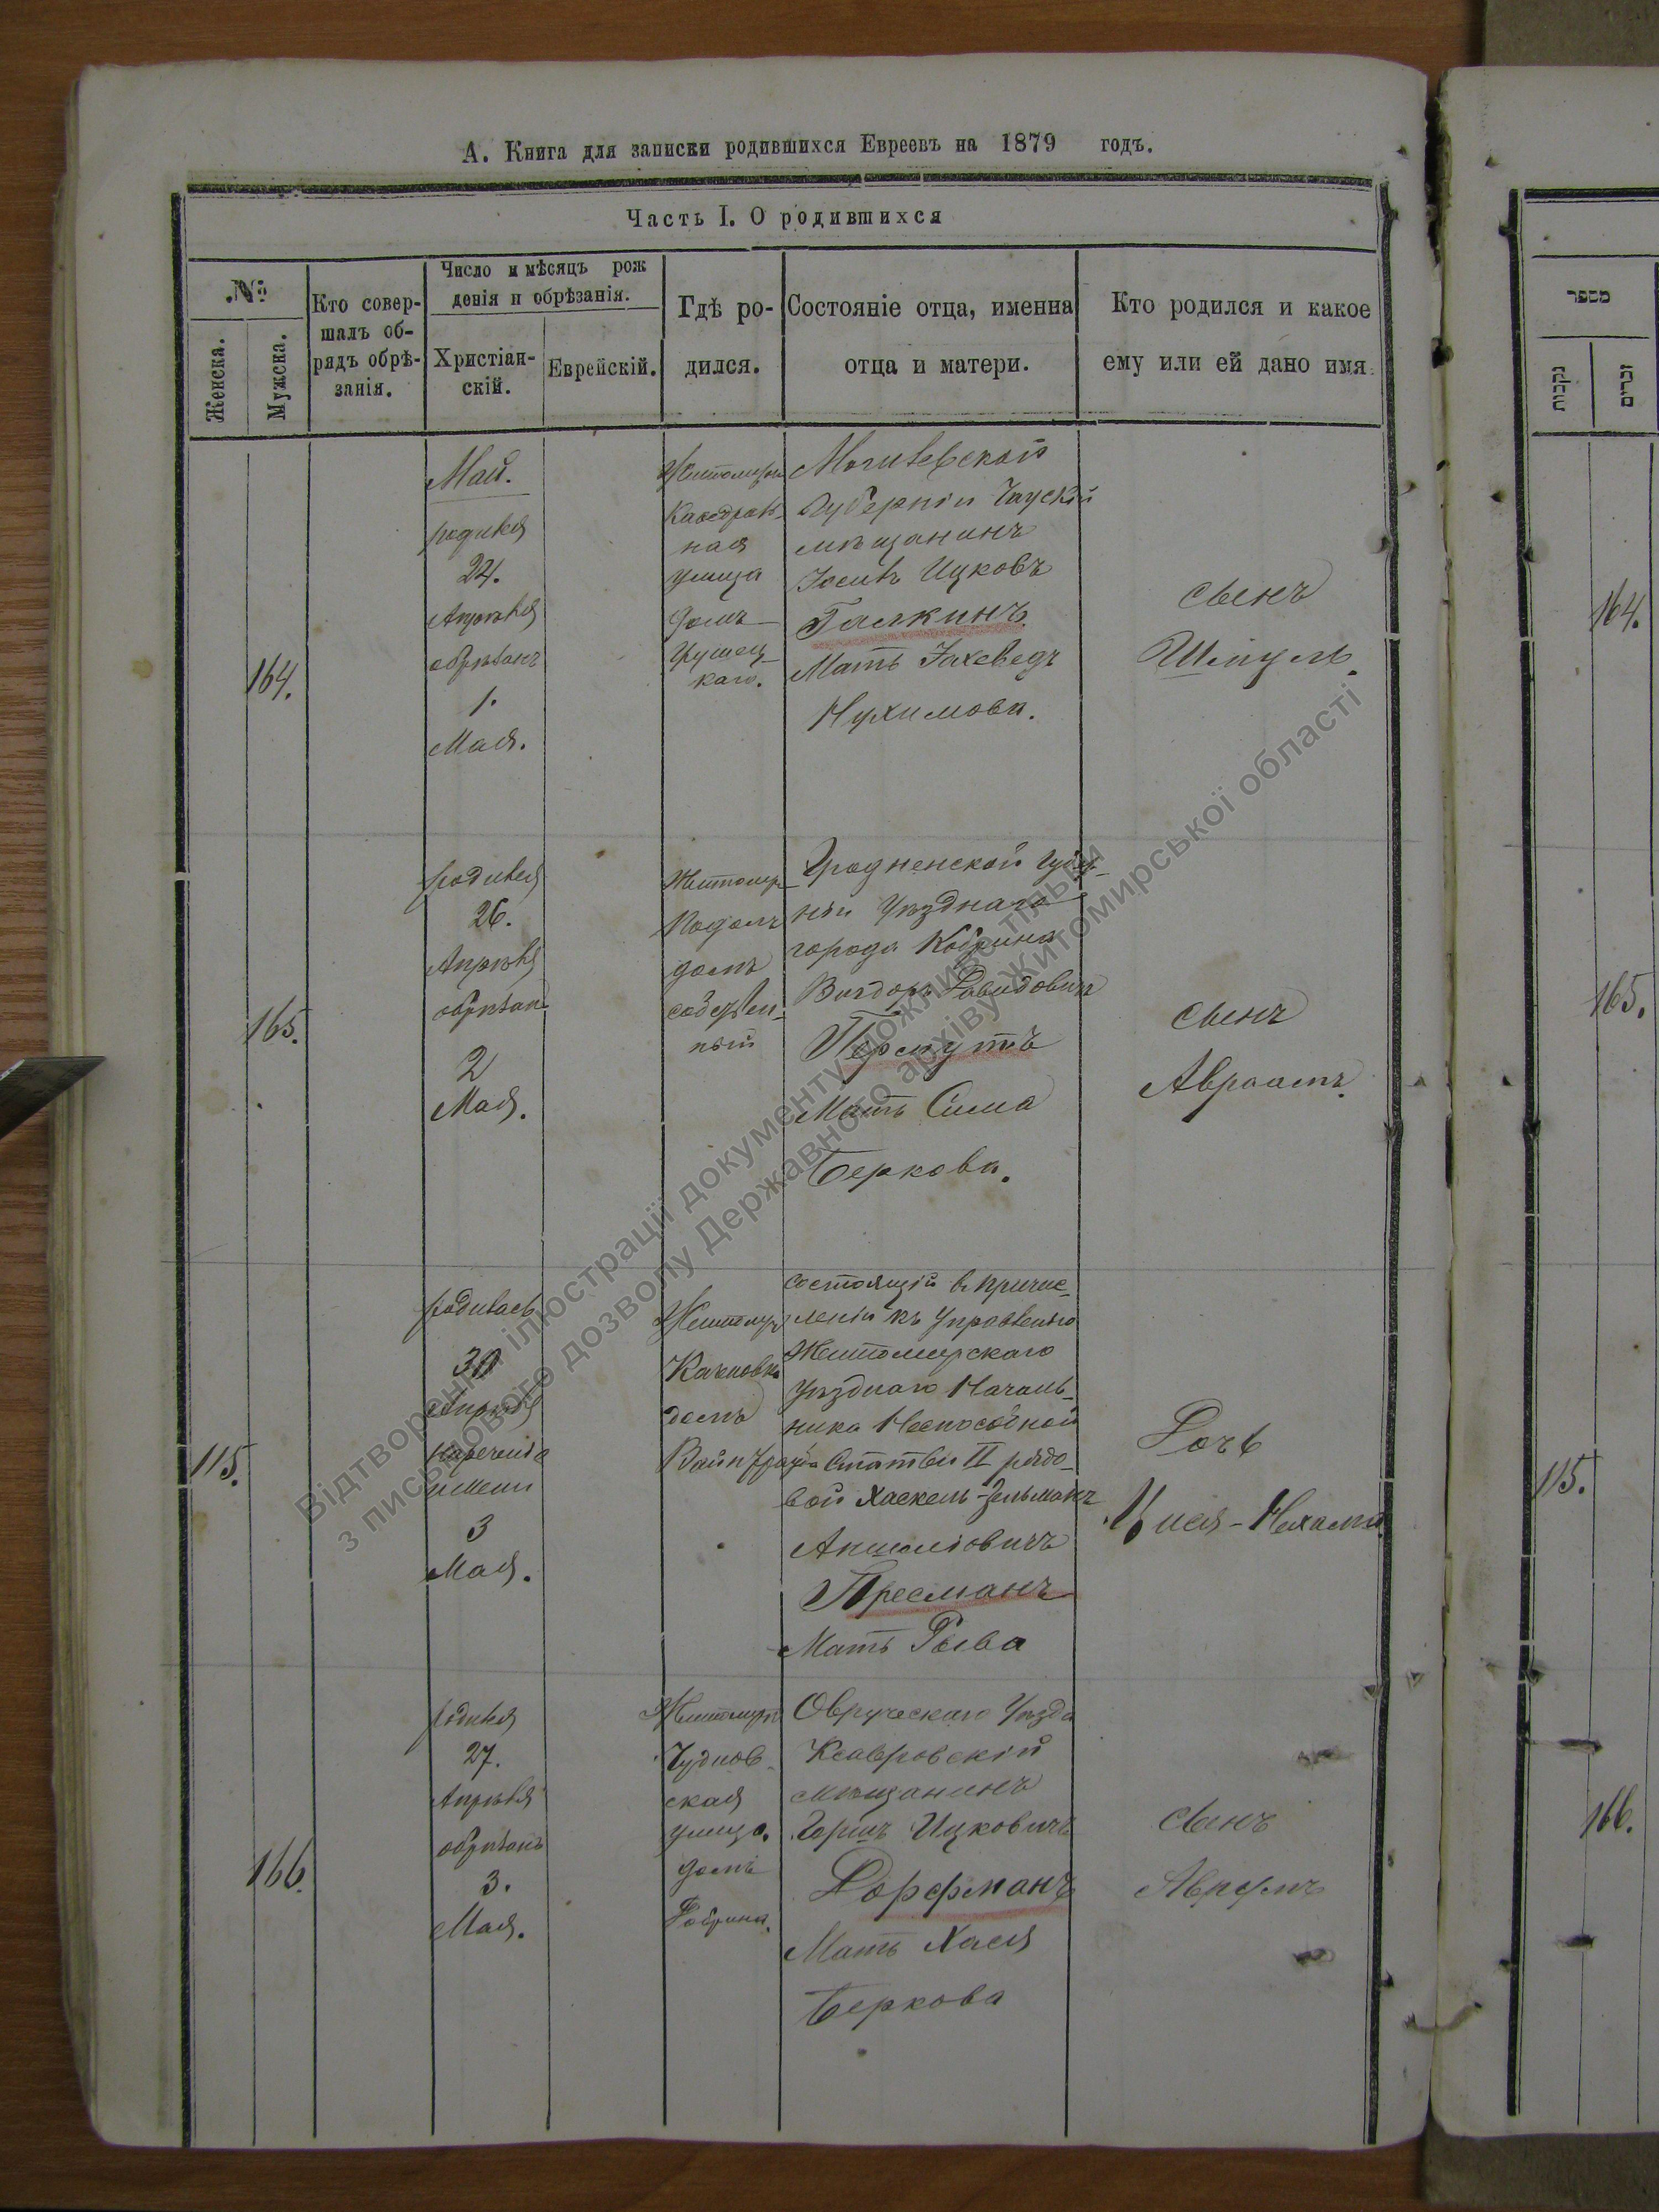 А. Книга для записки родившихся Евреевъ на 1879 годъ.
Часть I. О родившихся
№
Женска.
Мужска.
Кто совер-
шалъ об-
рядъ обрѣ-
занія.
Число и мѣсяцъ рож
денія и обрѣзанія.
Христіан-
скій.
Еврейскій.
Гдѣ ро-
дился.
Состояніе отца, именна
отца и матери.
Кто родился и какое
ему или ей дано имя.
מספר
נקבות
זכרים
164.
Май.
родился
24.
Апрѣля
обрѣзанъ
1.
Мая.
Житомиръ
Кафедраль-
ная
улица
домъ
каго.
Могилевской
Губерніи Чаускій
мѣщанинъ
Іосифъ Ицковъ
Галкинъ
Мать Іахеведъ
Нухимова.
сынъ
Шмуль.
164.
165.
родился
26.
Апрѣля
обрѣзанъ
2
Мая.
Житомиръ
Подолъ
домъ
собствен-
ный
Гродненской Губер-
ніи Уѣзднаго
города Кобрина
Вигдоръ Давидовичъ
Пермутъ
Мать Сима
Беркова.
сынъ
Авраамъ.
165.
115.
родилась
30
Апрѣля
наречение
имени
3
Мая.
Житомиръ
домъ
состоящій въ причис-
леніи къ управленію
Житомирскаго
уѣзднаго Началь-
ника Неспособной
Статьи II рядо-
вой Хаскель-Зельманъ
Аншелiовичъ
Пресманъ
Мать Рыва
Дочь
115.
166.
родился
27.
Апрѣля
обрѣзанъ
3.
Мая.
Житомиръ
Чуднов-
ская
улица.
домъ
Овручскаго Уѣзда
Ксаверовскій
мѣщанинъ
Гершъ Ицковичъ
Дорфманъ
Мать Хася
Беркова
сынъ
Аврумъ
166.
Відтворення ілюстрації документу можливо тільки
з письмового дозволу Державного архіву Житомирської області